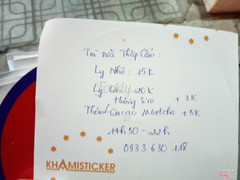 Trà Mãi Thập Cẩm:
Ly Nhỏ: 15K
Ly Lớn: 20K
Hương Sữa + 3K
Thêm Cacao/Matcha + 5K
14h30 - 22h
0933 630 118
KHAMISTICKER